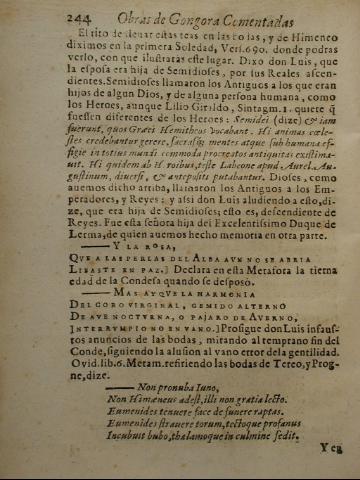 244 Obras de Gongora Comentadas
El rito de lleuar estas teas en las bodas, y de Himeneo
diximos en la primera Soledad, Vers.690. donde podras
verlo, con que ilustraràs este lugar. Dixo don Luis, que
la esposa era hija de Semidioses, por sus Reales ascen-
dientes. Semidioses llamaron los Antiguos a los que eran
hijos de algun Dios, y de alguna persona humana, como
los Heroes, aunque Lilio Giraldo, Sintagm.1. quiere q̃
fuessen diferentes de los Heroes: Semidei (dize) & iam
fuerunt, quos Graeci Hemitheus vocabant. Hi animas coele-
stes credebantur gerere, sacrasq; mentes atque sub humana ef-
figie in totius mundi commoda procreatos antiquitas existima-
uit. Hi quidem ab Heroibus, teste Labeone apud, Aurel. Au-
gustinum, diuersi, & antepositi putabantur. Dioses, como
auemos dicho arriba, llamaron los Antiguos a los Em-
peradores, y Reyes: y assi don Luis aludiendo a esto, di-
ze, que era hija de Semidioses; esto es, descendiente de
Reyes. Fue esta señora hija del Excelentissimo Duque de
Lerma, de quien auemos hecho memoria en otra parte.
Y LA ROSA,
QUE A LAS PERLAS DEL ALBA AUN NO SE ABRIA
LIBASTE EN PAZ.] Declara en esta Metafora la tierna
edad de la Condesa quando se desposò.
MAS AY QUE LA HARMONIA
DEL CORO VIRGINAL, GEMIDO ALTERNO
DE AVE NOCTVRNA, O PAJARO DE AVERNO,
INTERRVMPIO NO EN VANO.] Prosigue don Luis infaus-
tos anuncios de las bodas, mirando al temprano fin del
Conde, siguiendo la alusion al vano error de la gentilidad.
Ovid. lib.6. Metam. refiriendo las bodas de Tereo, y Prog-
ne, dize.
Non pronuba Iuno,
Non Himæneus adest, illi non gratia lecto.
Eumenides tenuere face de funere raptas.
Eumenides strauere torum, tectoque profanus
Incubuit bubo, thalamoque in culmine sedit.